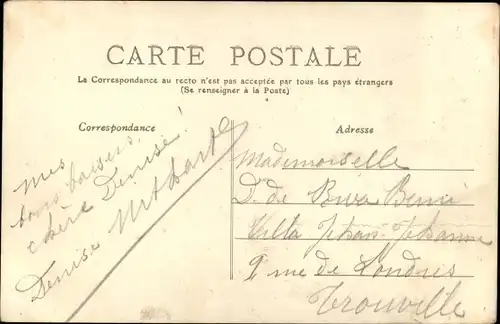 CARTE POSTALE
La Correspondance au recto n'est pas acceptée par tous les pays étrangers
(Se renseigner à la Poste)
Correspondance
Adresse
Mes
bons baisers,
chère Denise!
Denise
Mademoiselle
D. de
Villa
9 rue de Londres
Trouville